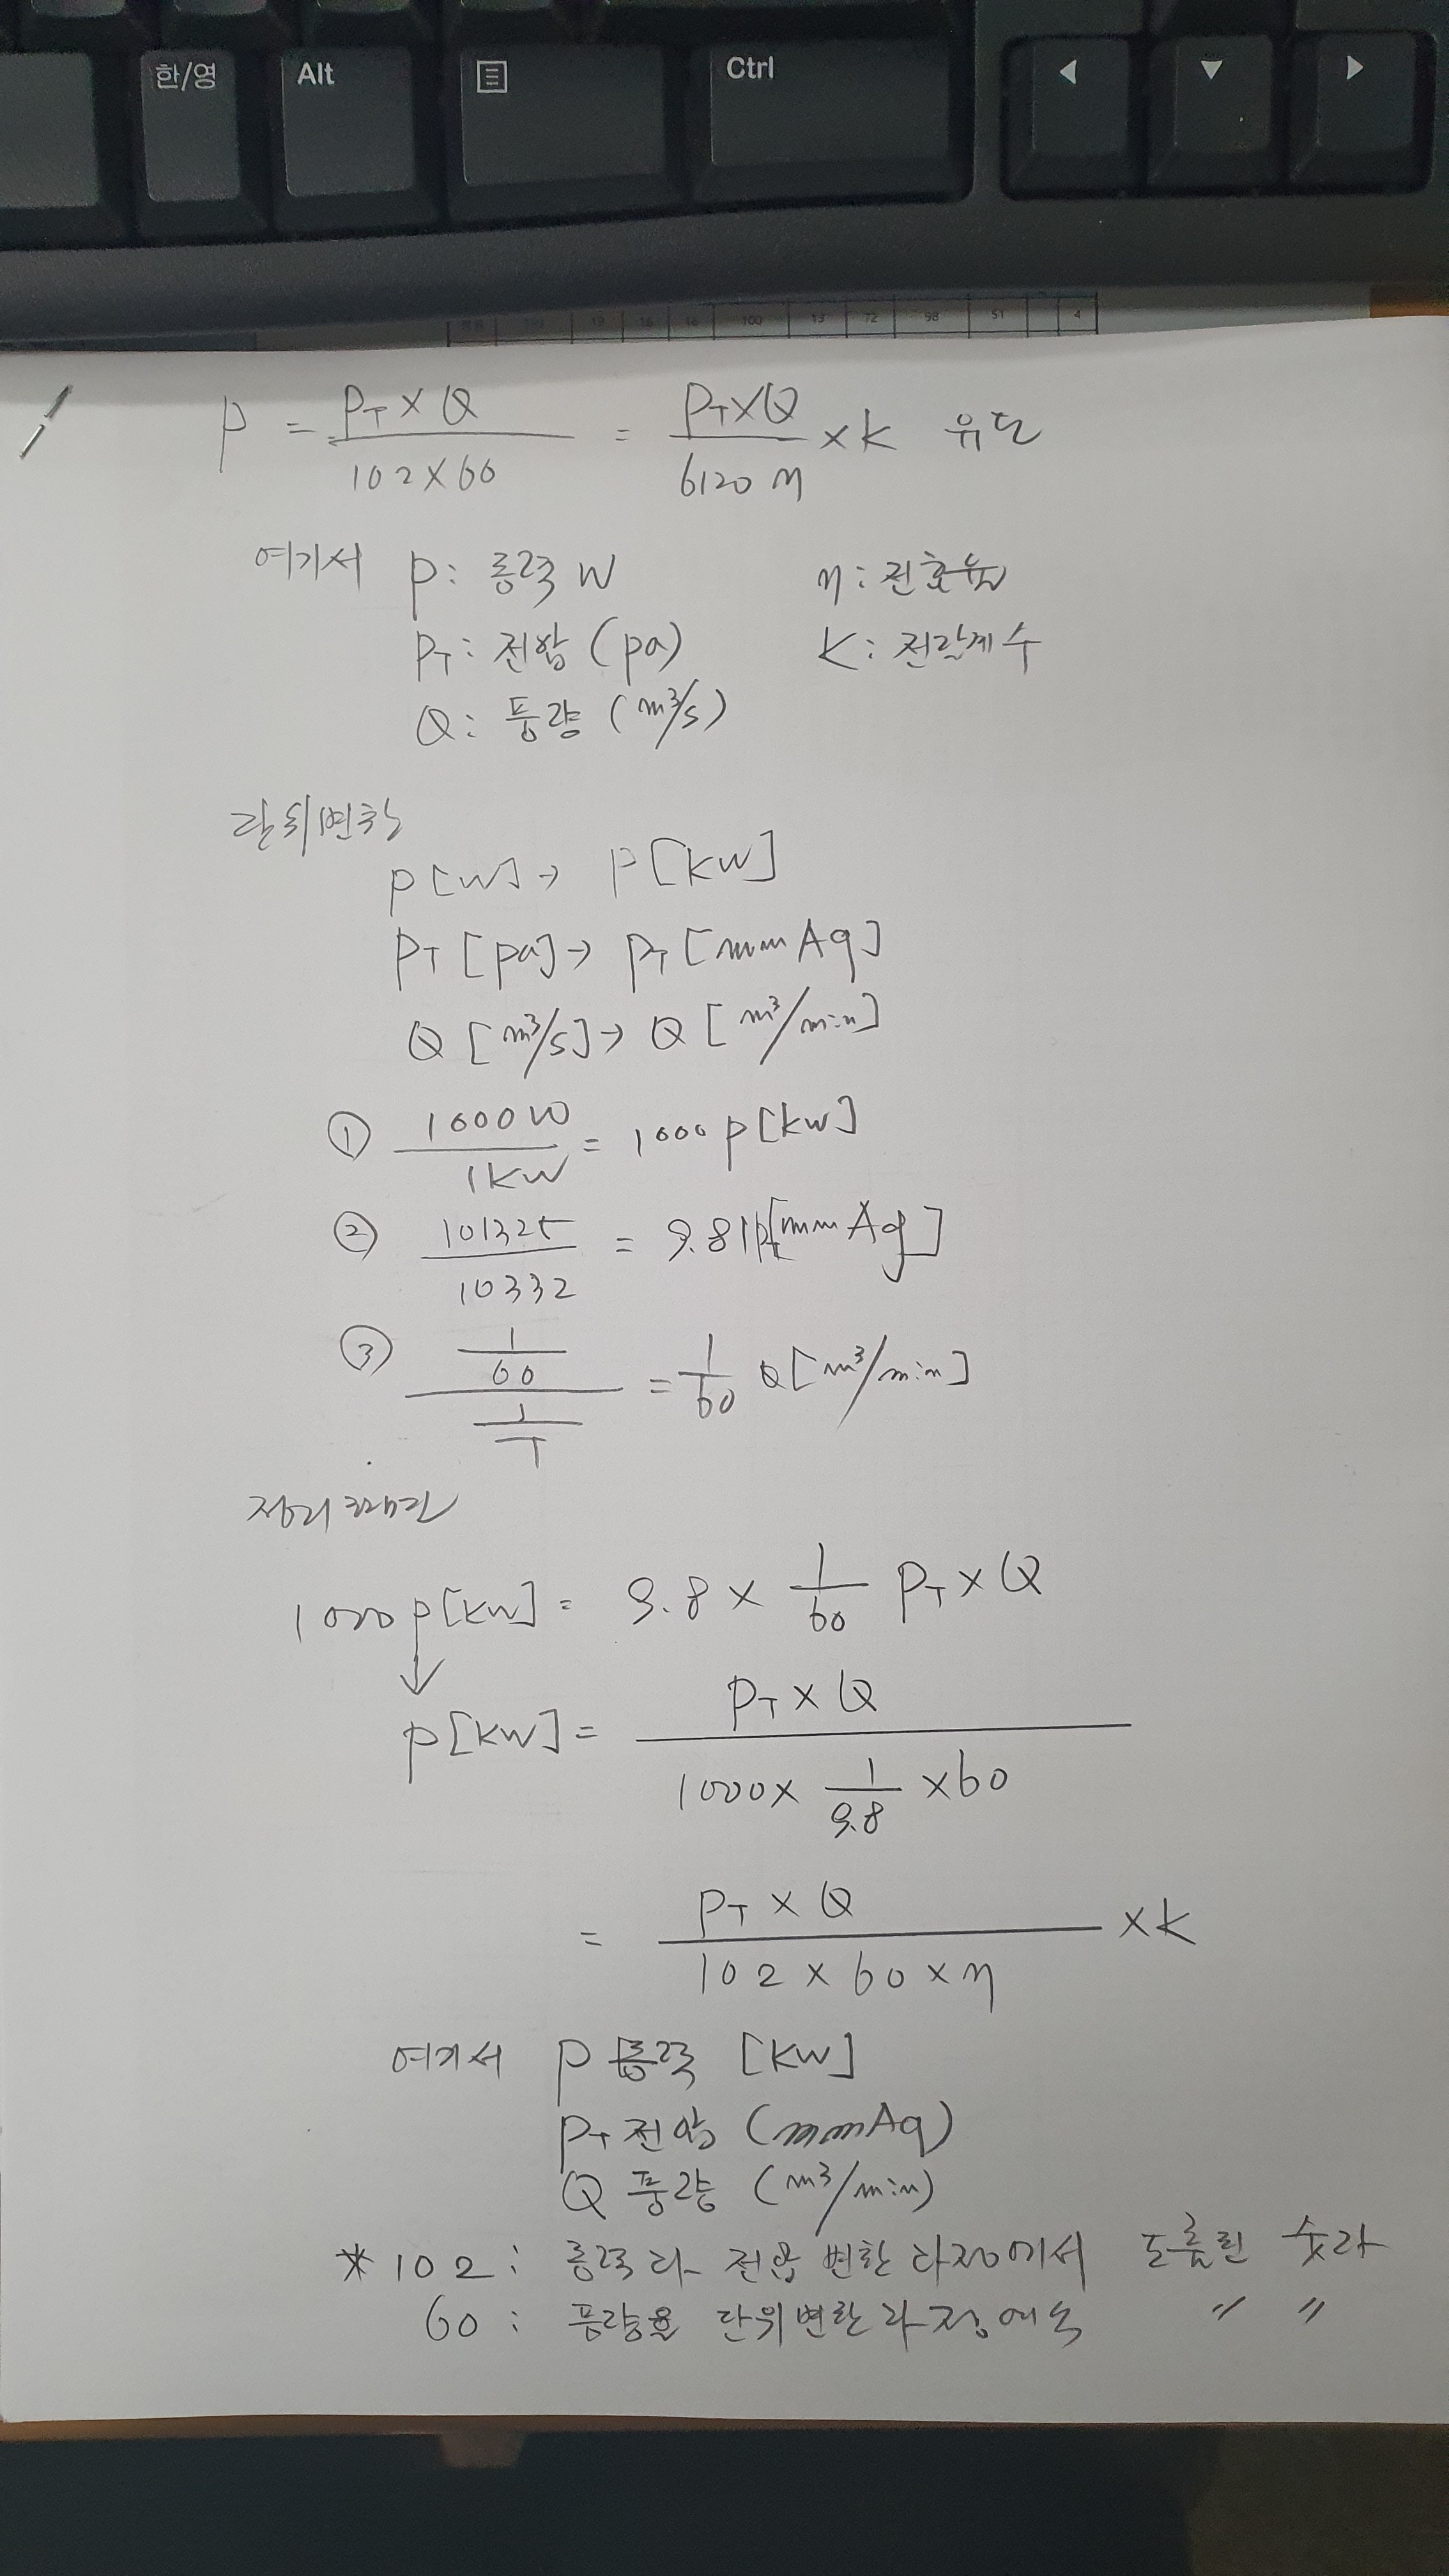 한/영 Alt Ctrl
100 13 72 98 51 4
P = PT × Q / 102 × 60 = PT × Q / 6120 η × K 유도
여기서 P : 동력 W η : 전효율
PT : 전압 (pa) K : 전달계수
Q : 풍량 (m³/s)
단위변환
P [W] → P [KW]
PT [pa] → PT [mmAq]
Q [m³/s] → Q [m³/min]
① 1000W / 1KW = 1000 P [KW]
② 101325 / 10332 = 9.81 PT [mmAq]
③ 1/60 / 1/1 = 1/60 Q [m³/min]
정리하면
1000 P [KW] = 9.8 × 1/60 PT × Q
↓
P [KW] = PT × Q / 1000 × 1/9.8 × 60
= PT × Q / 102 × 60 × η × K
여기서 P 동력 [KW]
PT 전압 (mmAq)
Q 풍량 (m³/min)
* 102 : 동력과 전압 변환 과정에서 도출된 숫자
60 : 풍량을 단위변환 과정에서 〃 〃